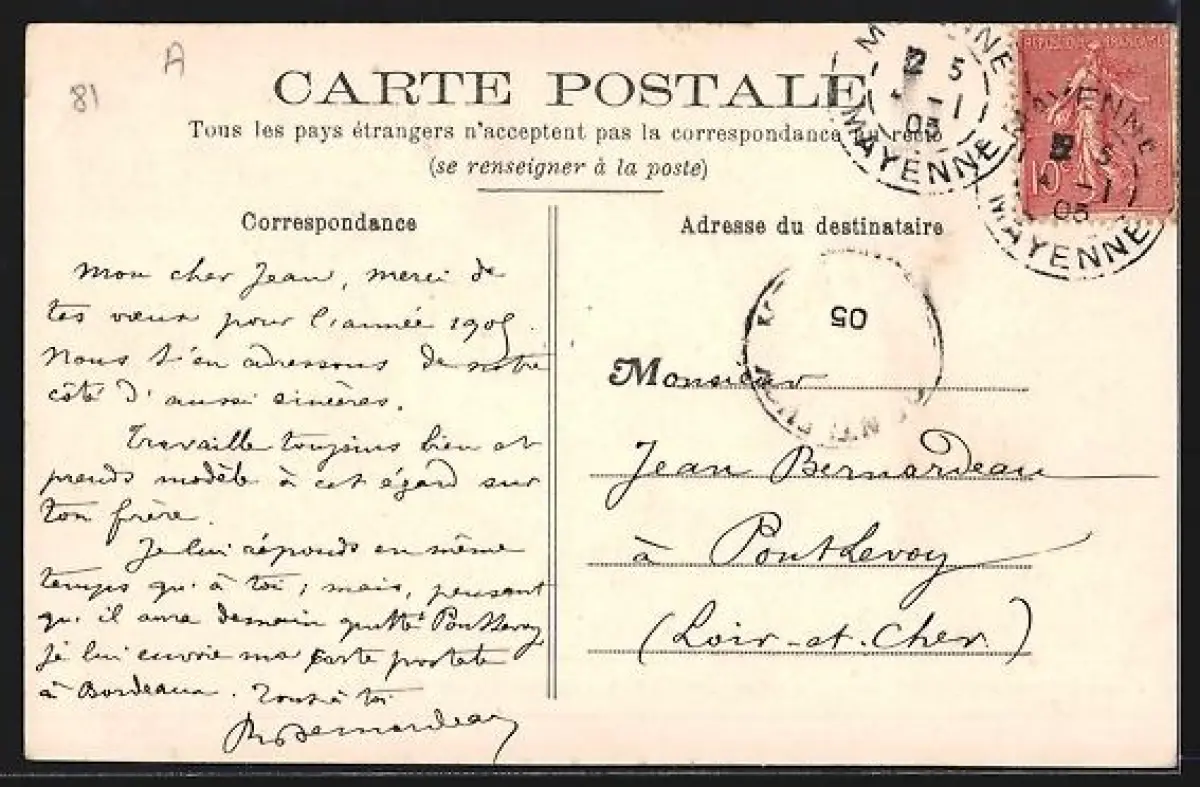 A
81
CARTE POSTALE
Tous les pays étrangers n'acceptent pas la correspondance au recto
(se renseigner à la poste)
MAYENNE
5
-1
05
MAYENNE
REPUBLIQUE FRANÇAISE
10c
MAYENNE
5
-1
05
MAYENNE
Correspondance
Mon cher Jean, merci de
tes vœux pour l'année 1905.
Nous t'en adressons de notre
côté d'aussi sincères.
Travaille toujours bien et
prends modèle à cet égard sur
ton frère.
Je lui réponds en même
temps qu'à toi ; mais, pensant
qu'il aura demain quitté Pontlevoy
je lui envoie ma carte postale
à Bordeaux. Tout à toi
Bernardeau
Adresse du destinataire
05
Monsieur
Jean Bernardeau
à Pontlevoy
(Loir-et-Cher.)